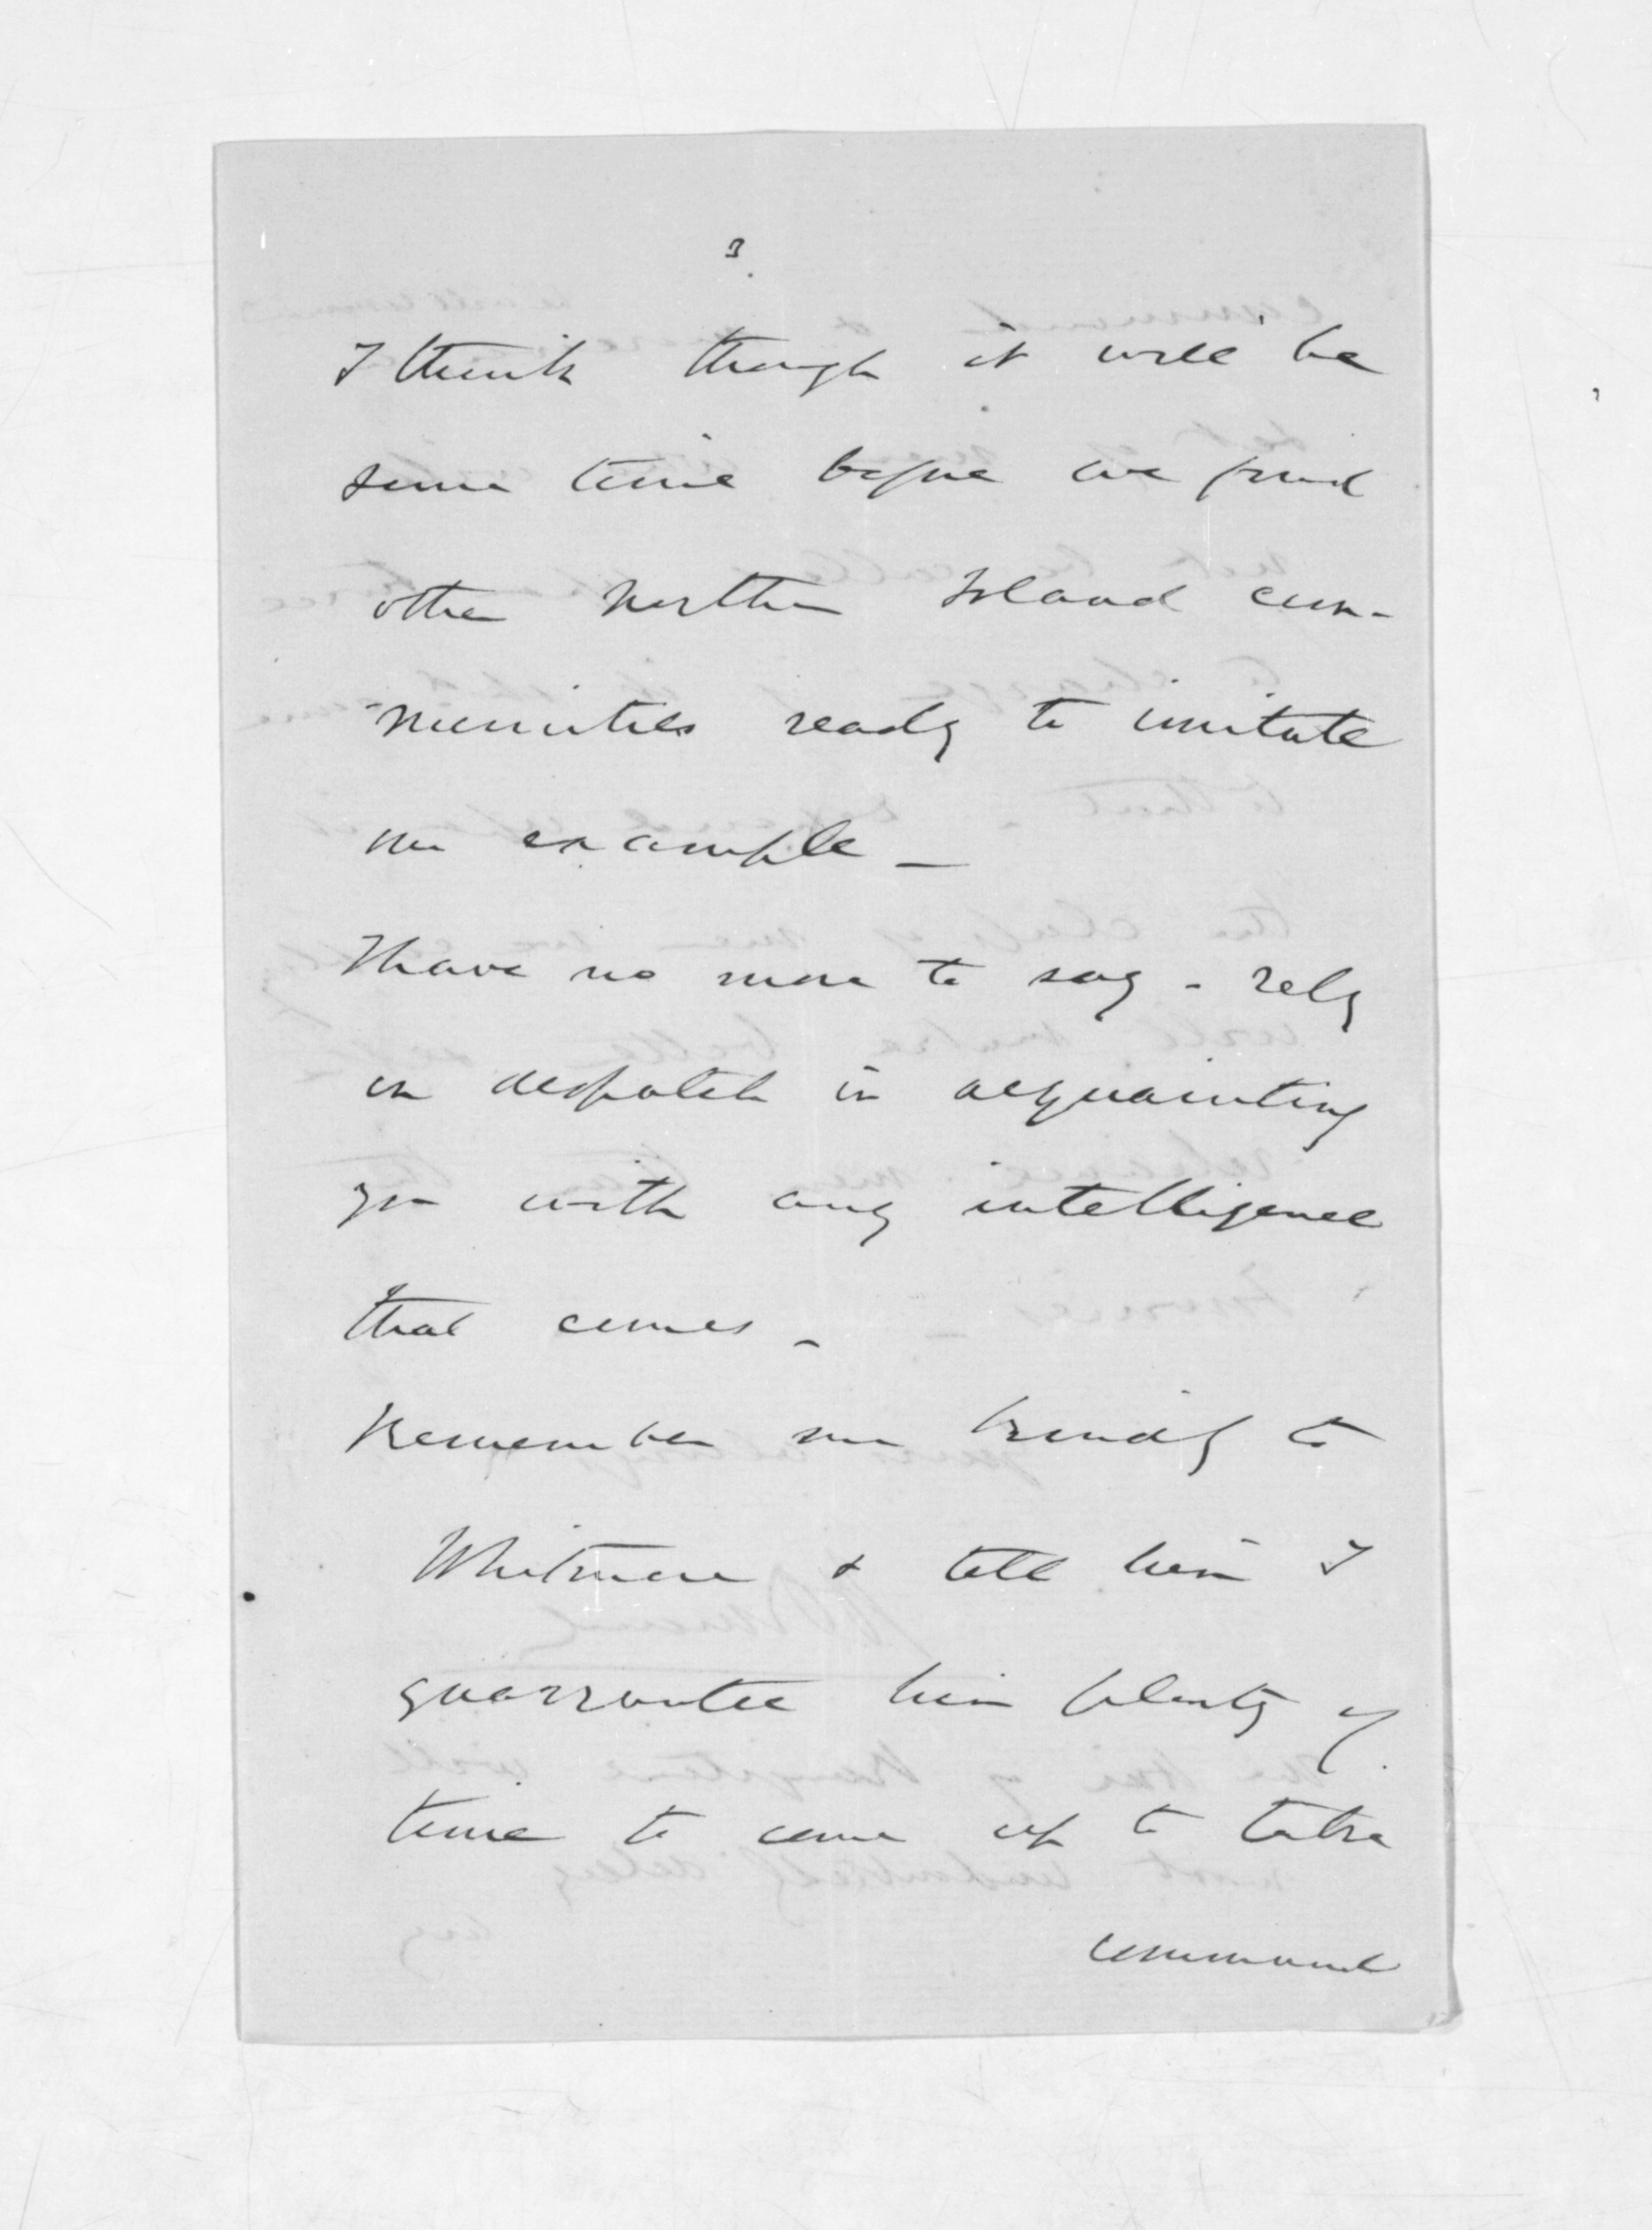 3.
I think though it will be
some time before we find
other Northern Island com-
munities ready to imitate
our example _
I have no more to say - rely
on despatch in acquainting
you with any intelligence
that comes _
Remember me kindly to
Whitmore & tell him I
guarrantee him plenty of
time to come up to take
command